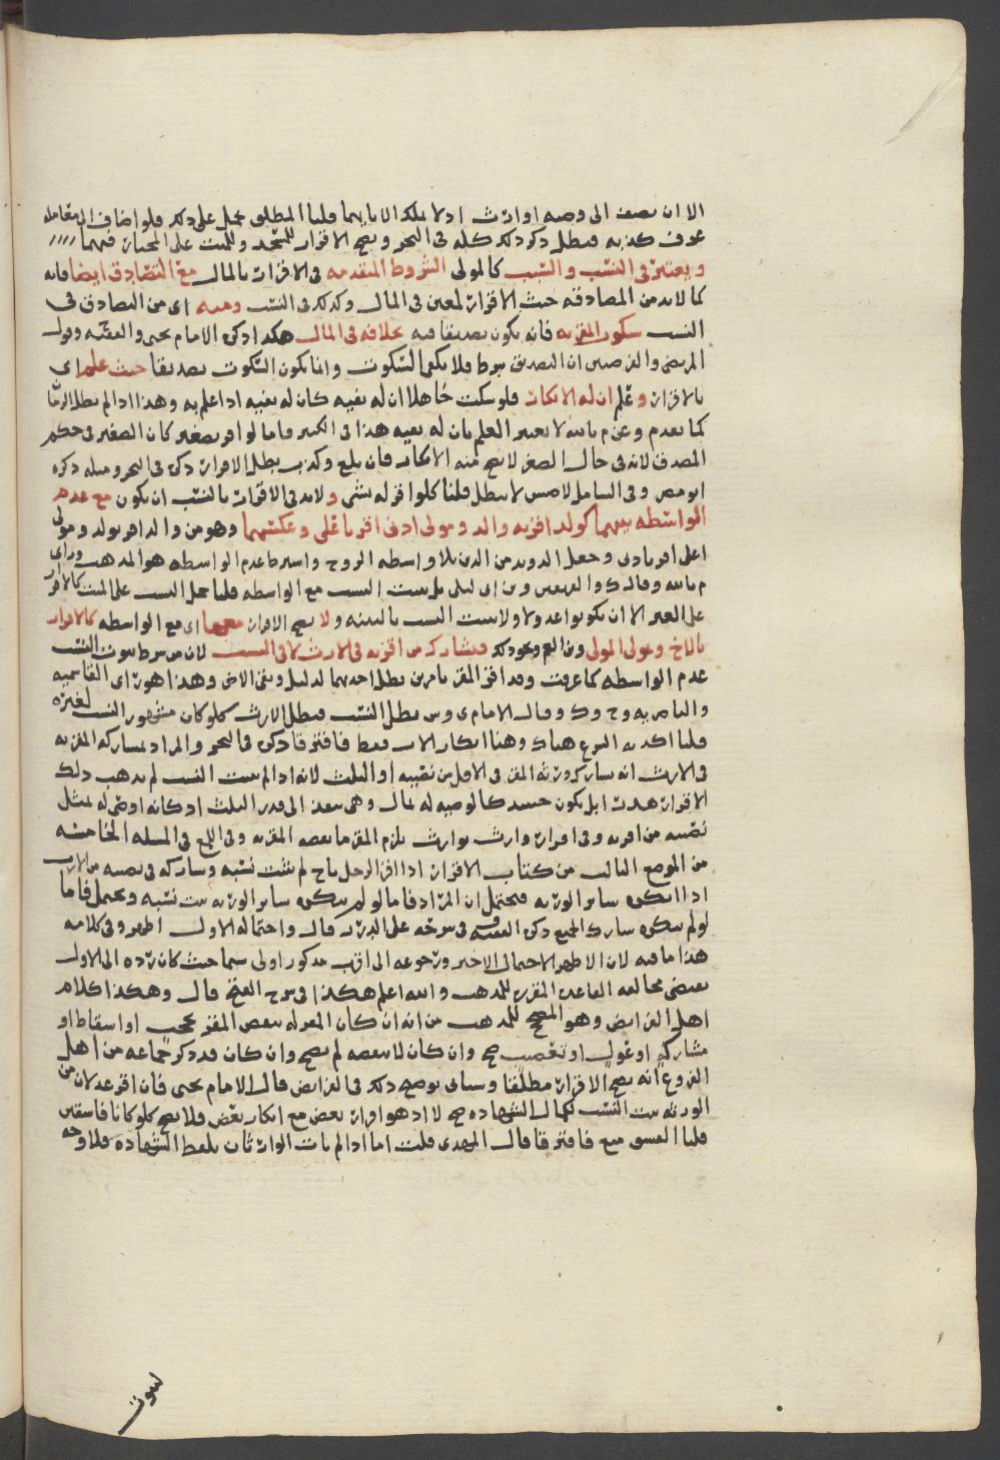 الا ان يضف الى وصيه او ارث اذ لا يملك الا بايهما قلنا المطلق يحمل على ذلك فلو اضاف الى معامله
عرف كذبه فبطل ذكر ذلك كله في البحر ويصح الاقرار للمسجد وللميت على المختار فيهما
ويعتبر في النسب والسبب كالمولى الشروط المتقدمه في الاقرار بالمال مع التصادق ايضا فانه
كما لابد من المصادقه حيث الاقرار لمعين في المال وكذلك في النسب ومنه اي من التصادق في
النسب سكوت المقر به فانه يكون تصديقا فيه بخلافه في المال هكذا ذكره الامام يحيى والفقيه وقول
ان التصديق شرط فلا يكفي السكوت وانما يكون السكوت تصديقا حيث علم اي
بالاقرار وعلم ان له الانكار فلو سكت جاهلا ان له نفيه كان له نفيه اذا علم به وهذا اذا لم يطل الزمان
كما تقدم وعن م بالله لا يعتبر العلم بان له نفيه هذا في الكبير فاما لو اقر بصغير كان الصغير في حكم
المصدق لانه في حال الصغر لا يصح منه الانكار فان بلغ وكذب بطل الاقرار ذكره في البحر ومثله ذكره
ابو مضر وفي الشامل لا يبطل قلنا كلو اقر له بشي ولابد في الاقرار بالنسب ان يكون مع عدم
الواسطه بينهما كولد اقر به والد ومولى ادنى اقر باعلى وعكسهما وهو من والد اقر بولد ومولى
اعلى اقر بادنى وجعل الدويد من الذي بلا واسطه الزوج واشتراط عدم الواسطه هو المذهب وراي
م بالله وقال ك وابن ابي ليلى بل يثبت النسب مع الواسطه قلنا حمل النسب على الميت كالاقرار
على الغير الا ان يكونوا عدولا ولا يثبت النسب بالبينه ولا يصح الاقرار معها اي مع الواسطه كالاقرار
بالاخ ومولى المولى وابن العم ونحو ذلك فيشارك من اقر به في الارث لا في النسب لان من شرط ثبوت النسب
عدم الواسطه كما عرفت وقد اقر المقر بامرين بطل احدهما لدليل وبقي الاخر وهذا هو راي القاسميه
والناصريه وح وك وقال الامام ي وش بطل النسب فبطل الارث كلو كان مشهور النسب لغيره
قلنا اكذبه الشرع هناك وهنا انكار الاب فقط فافترقا ذكره في البحر والمراد بمشاركه المقر به
في الارث انه يشاركه ورثه المقر في الاقل من نصيبه او الثلث لانه اذا لم يثبت النسب لم يذهب ذلك
الاقرار هدرا بل يكون حينئذ كالوصيه له بمال وهي تنفذ الى قدر الثلث اذ كانه اوصى له بمثل
نصيبه من اقر به وفي اقرار وارث بوارث يلزم المقر ما نقصه المقر به وفي اللمع في المسئله الخامسه
من الموضع الثالث من كتاب الاقرار اذا اقر الرجل باخ لم يثبت نسبه وشاركه في نصيبه من الارث
اذا انكره سائر الورثه فيحتمل ان المراد فاما لو لم ينكره سائر الورثه يثبت نسبه ويحتمل فاما
لو لم ينكره شارك الجميع ذكره الفقيه ف في شرحه على الدرر قال واحتماله الاول اظهر وفي كلامه
هذا ما فيه لان الاظهر الاحتمال الاخير ورجوعه الى اقرب مذكور اولى سيما حيث كان رده الى الاول
يقتضي مخالفه القاعده المقرره للمذهب والله اعلم هكذا في شرح الفتح قال وهكذا كلام
اهل الفرائض وهو المصحح للمذهب من انه ان كان المقر له ينقص المقر بحجب او اسقاط او
مشاركه او عول او تعصيب صح وان كان لا ينقصه لم يصح وان كان قد ذكر جماعه من اهل
الفروع انه يصح الاقرار مطلقا وسياتي توضيح ذلك في الفرائض قال الامام يحيى فان اقر عدلان من
الورثه ثبت النسب لكمال الشهاده صح لا اذ هو اقرار بعض مع انكار بعض فلا يصح كلو كانا فاسقين
قلنا الفسق منع فافترقا قال المهدي قلت اما اذا لم يات الوارثان بلفظ الشهاده فلا وجه
لثبوت